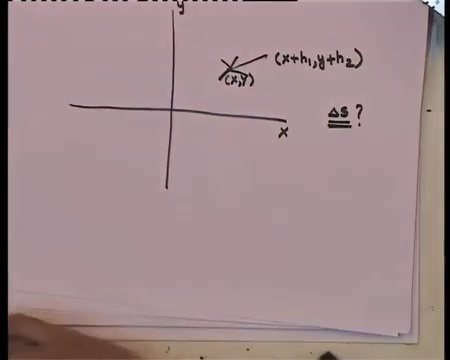 y
(x+h₁, y+h₂)
(x,y)
Δs ?
x